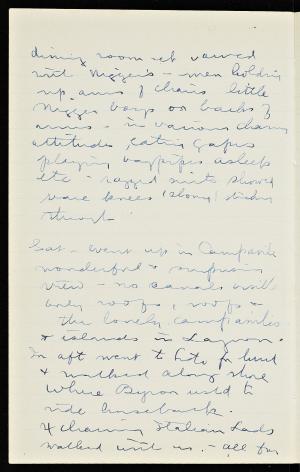 dining room set carved
with niggers - men holding
up arms of chairs little
nigger boys on backs of
arms - in various charming
attitudes, eating grapes
playing bagpipes asleep
etc - ragged suits showed
bare knees (ebony) sticking
through

Sat - Went up in Campanile
wonderful & surprising
view - no canals visible
only roofs, roofs &
the lovely campaniles
& islands in Lagoon.
In aft went to Lido for lunch
& walked along shore
where Byron used to
ride horseback.
4 charming Italian lads
walked with us. - all for